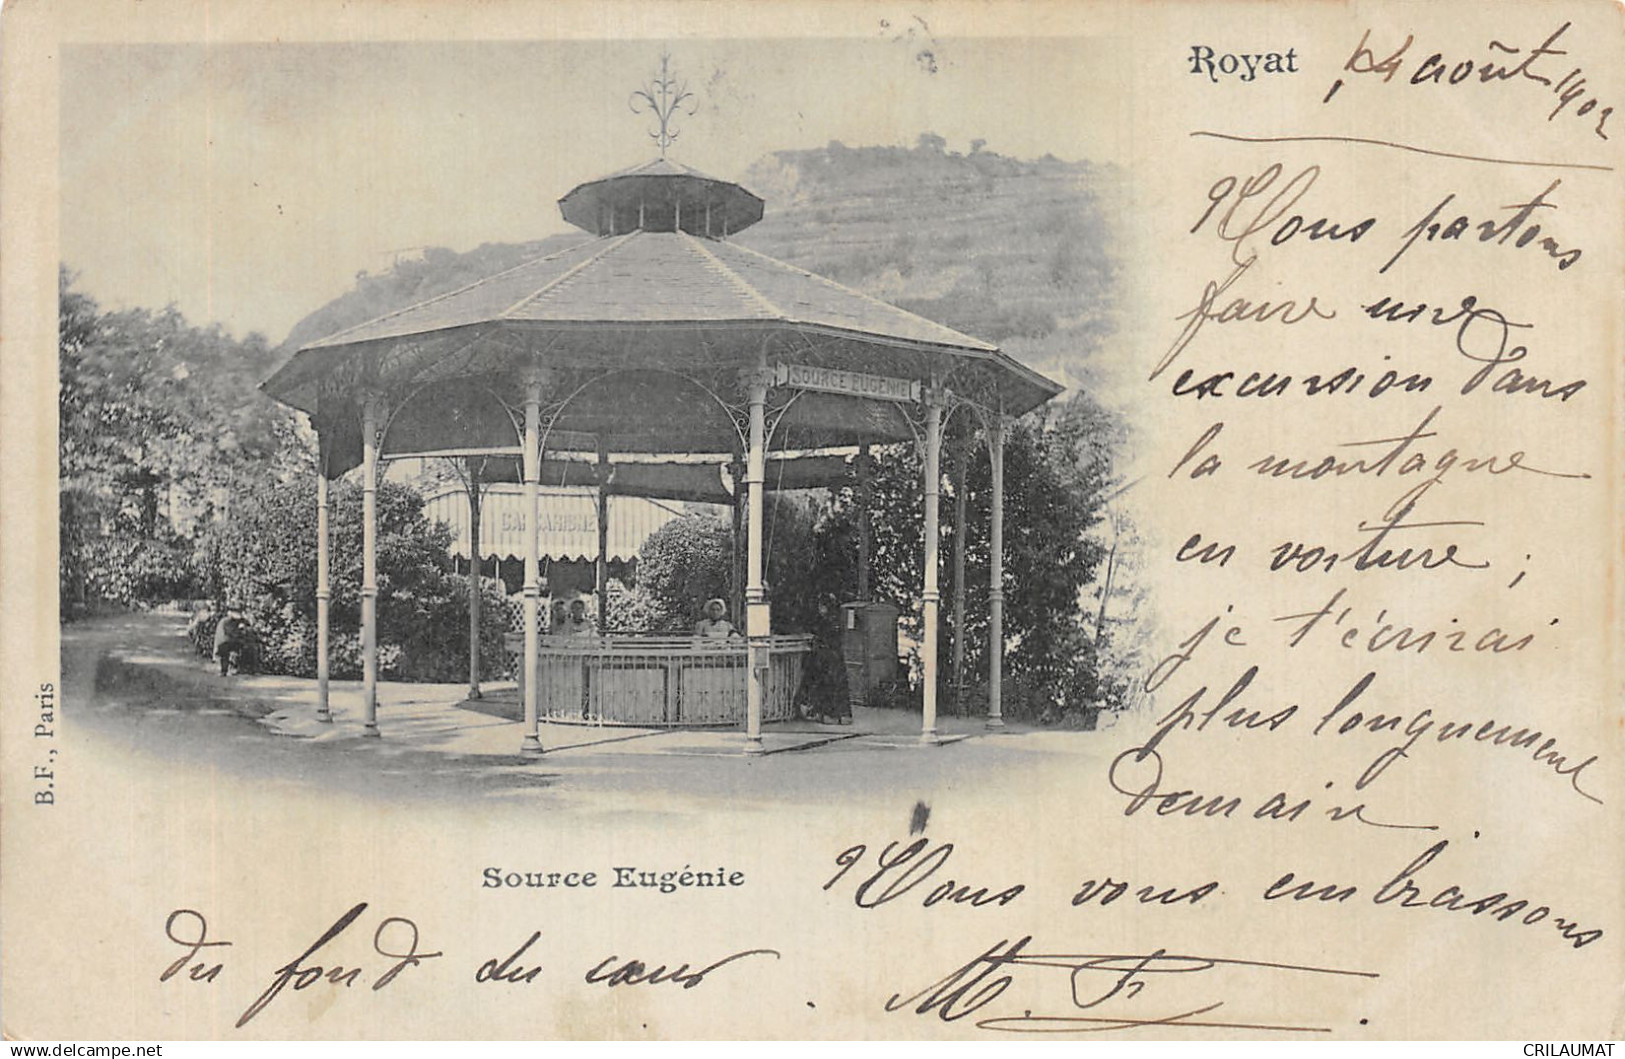 Royat 14 août 1902
Nous partons
faire une
excursion dans
la montagne
en voiture ;
je t'écrirai
plus longuement
demain.
Nous vous embrassons
du fond du cœur.
M. F.
SOURCE EUGÉNIE
Source Eugénie
B.F., Paris
delcampe.net
CRILAUMAT